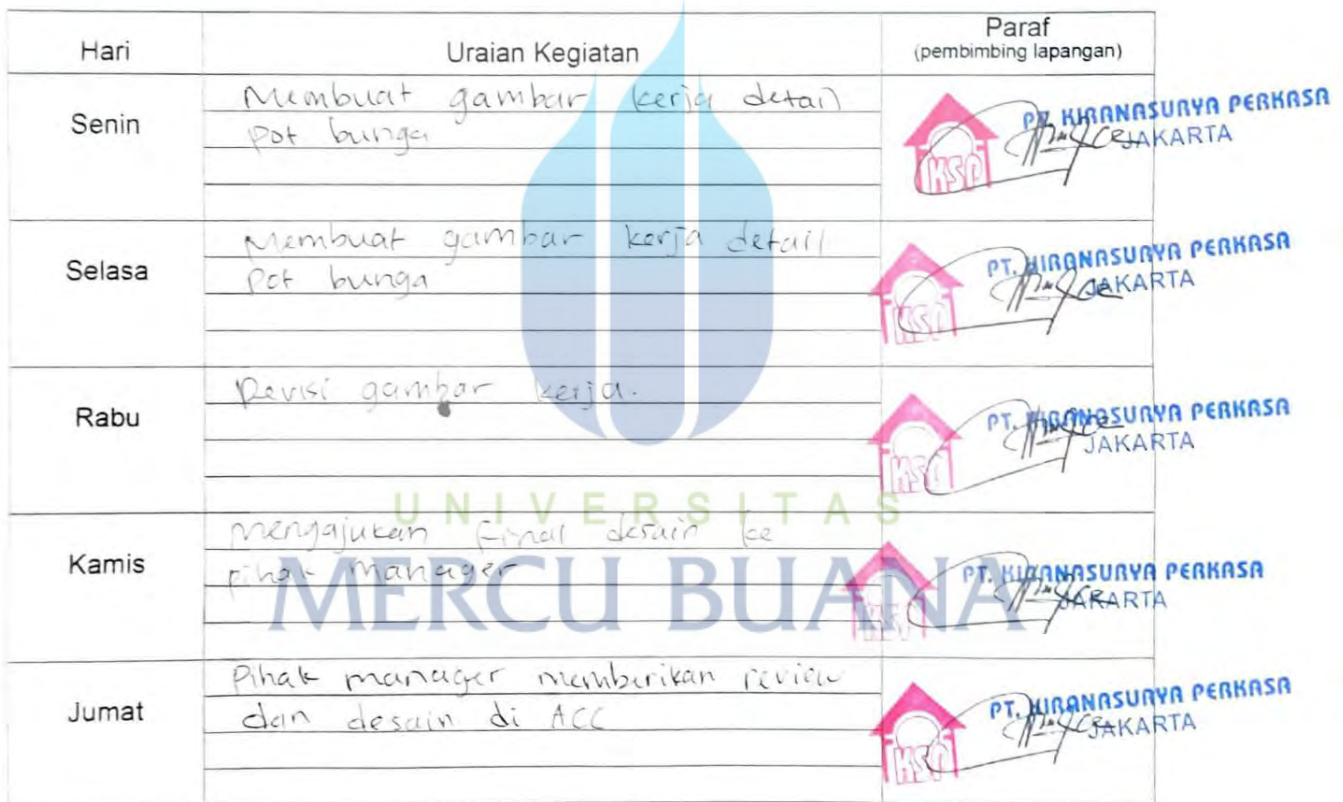 Hari Uraian Kegiatan Paraf
(pembimbing lapangan)
Senin
Membuat gambar kerja detail
pot bunga
KSP
PT. KIRANASURYA PERKASA
JAKARTA
Selasa
Membuat gambar kerja detail
pot bunga
KSP
PT. KIRANASURYA PERKASA
JAKARTA
Rabu
Revisi gambar kerja.
KSP
PT. KIRANASURYA PERKASA
JAKARTA
UNIVERSITAS
MERCU BUANA
Kamis
mengajukan Final desain ke
pihak manager
KSP
PT. KIRANASURYA PERKASA
JAKARTA
Jumat
Pihak manager memberikan review
dan desain di ACC
KSP
PT. KIRANASURYA PERKASA
JAKARTA